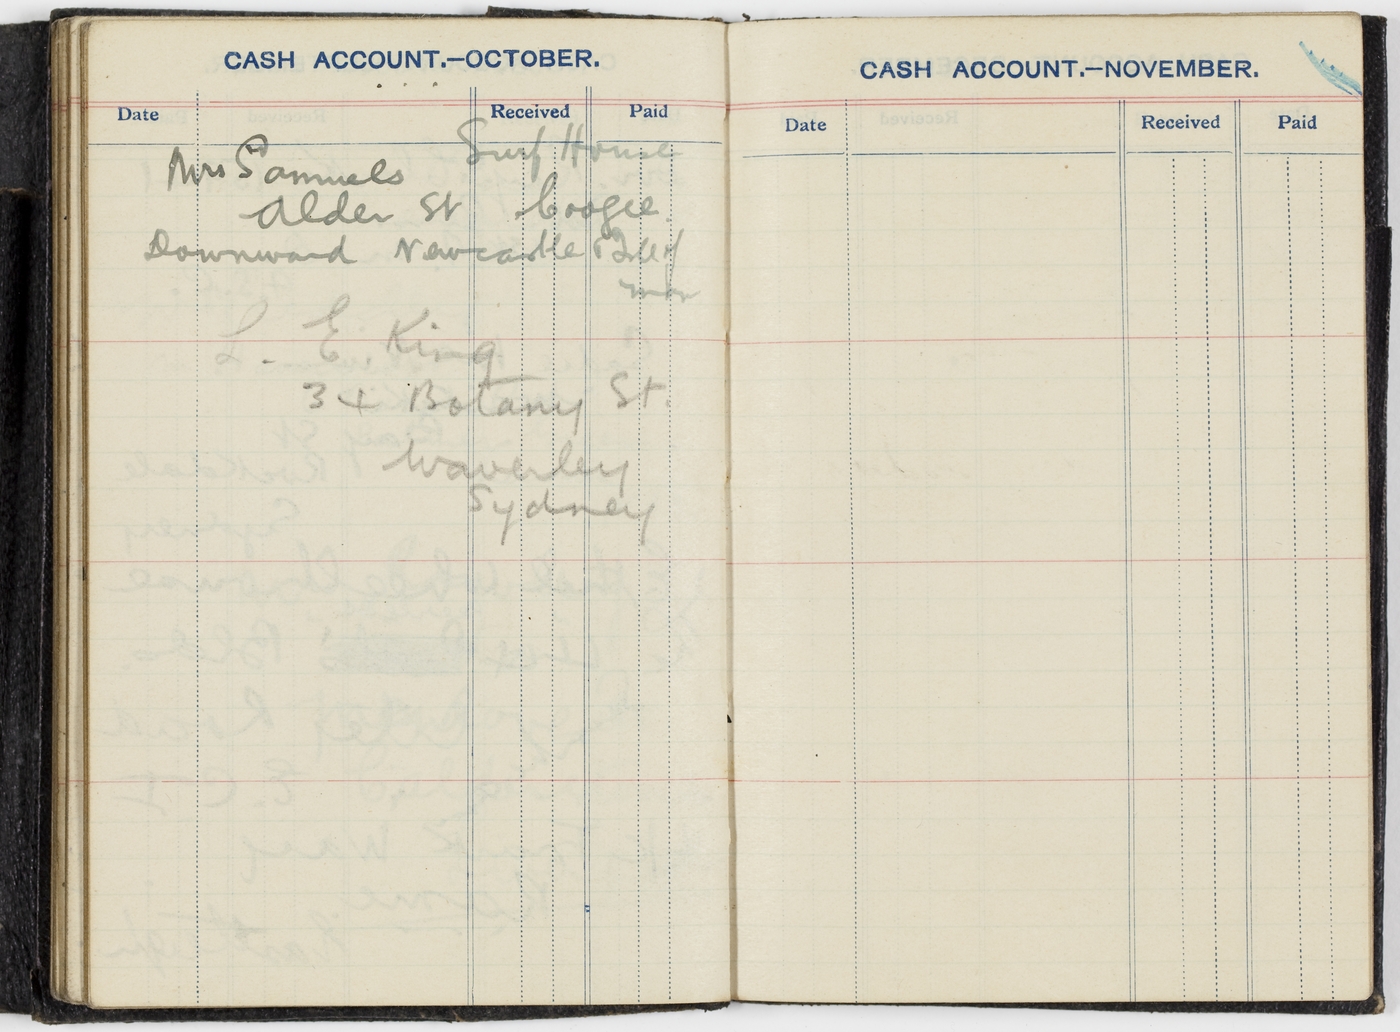 CASH ACCOUNT.—OCTOBER.
Date Received Paid
Surf House
Mrs Samuels
Alder St Coogee
Downward Newcastle
L. E. King
34 Botany St.
Waverley
Sydney
CASH ACCOUNT.—NOVEMBER.
Date Received Paid